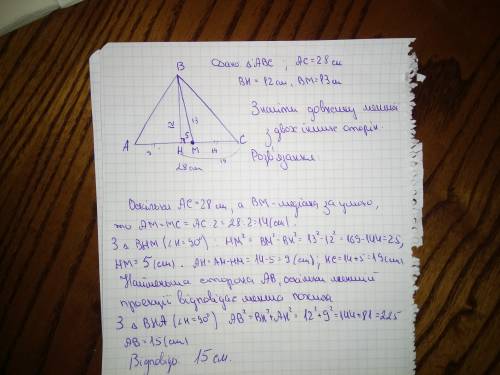 Дано: ΔABC ; AC=28см
BH=12см, BM=13см
Знайти довжину меншої
з двох інших сторін.
Розв'язання
B
12
13
5
A
9
H
M
14
C
19
28см
Оскільки AC=28см, а BM-медіана за умовою,
то AM=MC=AC:2=28:2=14(см).
З Δ BHM (∠H=90°): HM²=BM²-BH²=13²-12²=169-144=25,
HM=5(см). AH=AM-HM=14-5=9(см); HC=14+5=19(см)
Найменша сторона AB, оскільки меншій
проекції відповідає менша похила
З Δ BHA (∠H=90°) AB²=BH²+AH²=12²+9²=144+81=225
AB=15(см)
Відповідь: 15см.